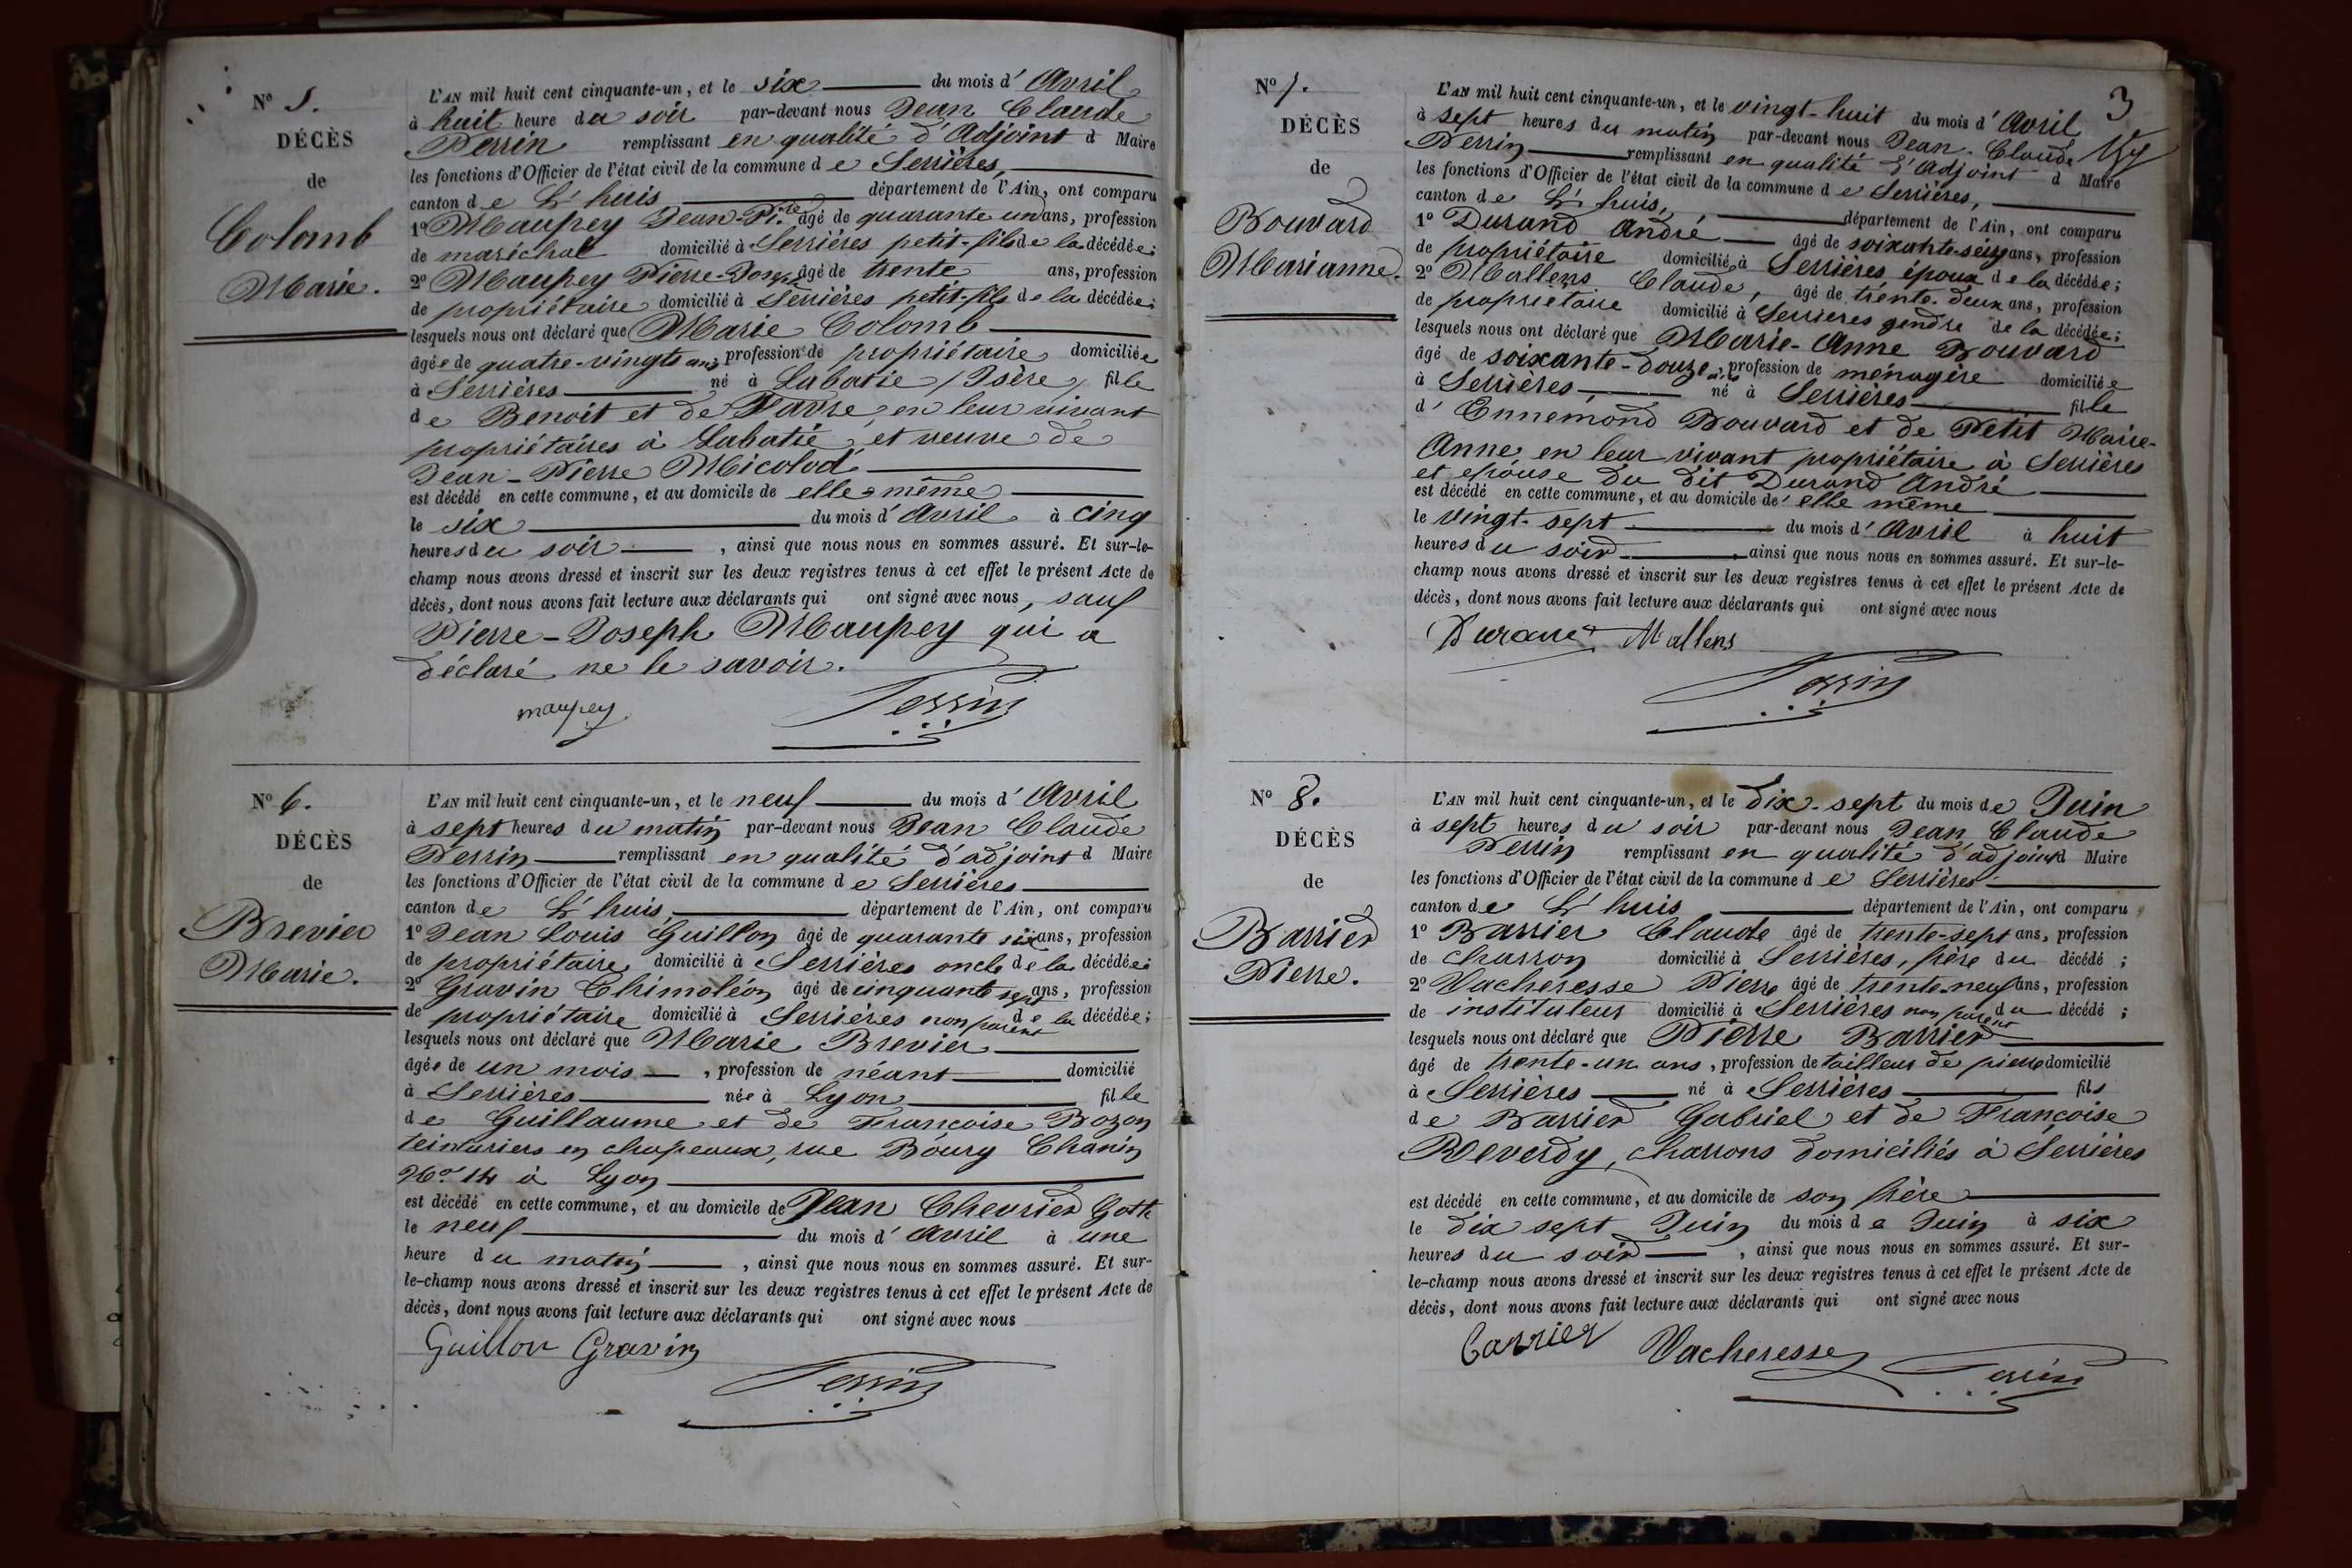 N° 5.
DÉCÈS
de
Colomb
Marie.
L'AN mil huit cent cinquante-un, et le six du mois d'Avril
à huit heure du soir par-devant nous Jean Claude
Perrin remplissant en qualité d'Adjoint d Maire
les fonctions d'Officier de l'état civil de la commune de Serrières,
canton de L'huis département de l'Ain, ont comparu
1° Maupey Jean-Pi.re âgé de quarante un ans, profession
de maréchal domicilié à Serrières petit-fils de la décédée;
2° Maupey Pierre-Joseph âgé de trente ans, profession
de propriétaire domicilié à Serrières petit-fils de la décédée;
lesquels nous ont déclaré que Marie Colomb
âgée de quatre-vingts ans profession de propriétaire domiciliée
à Serrières né à Labatie (Isère) fille
de Benoit et de Favre, en leur vivant
propriétaires à Labatié, et veuve de
Jean-Pierre Micolod
est décédé en cette commune, et au domicile de elle-même
le six du mois d'Avril à cinq
heures du soir, ainsi que nous nous en sommes assuré. Et sur-le-
champ nous avons dressé et inscrit sur les deux registres tenus à cet effet le présent Acte de
décès, dont nous avons fait lecture aux déclarants qui ont signé avec nous, sauf
Pierre-Joseph Maupey qui a
déclaré ne le savoir.
maupey Perrin
N° 6.
DÉCÈS
de
Brevier
Marie.
L'AN mil huit cent cinquante-un, et le neuf du mois d'Avril
à sept heures du matin par-devant nous Jean Claude
Perrin remplissant en qualité d'adjoint d Maire
les fonctions d'Officier de l'état civil de la commune de Serrières
canton de L'huis, département de l'Ain, ont comparu
1° Jean Louis Guillon âgé de quarante six ans, profession
de propriétaire domicilié à Serrières oncle de la décédée;
2° Gravin Thimoléon âgé de cinquante sept ans, profession
de propriétaire domicilié à Serrières non parent de la décédée;
lesquels nous ont déclaré que Marie Brevier
âgée de un mois, profession de néant domicilié
à Serrières née à Lyon fille
de Guillaume et de Francoise Bozon
teinturiers en chapeaux, rue Bourg Chanin
No. 14 à Lyon
est décédé en cette commune, et au domicile de Jean Chevrier Goth
le neuf du mois d'Avril à une
heure du matin, ainsi que nous nous en sommes assuré. Et sur-
le-champ nous avons dressé et inscrit sur les deux registres tenus à cet effet le présent Acte de
décès, dont nous avons fait lecture aux déclarants qui ont signé avec nous
Guillon Gravin
Perrin
3
N° 7.
DÉCÈS
de
Bouvard
Marianne.
L'AN mil huit cent cinquante-un, et le vingt-huit du mois d'Avril
à sept heures du matin par-devant nous Jean-Claude
Perrin remplissant en qualité d'Adjoint d Maire
les fonctions d'Officier de l'état civil de la commune de Serrières,
canton de L'huis, département de l'Ain, ont comparu
1° Durand André âgé de soixante-seize ans, profession
de propriétaire domicilié à Serrières époux de la décédée;
2° Mallens Claude, âgé de trente-deux ans, profession
de proprietaire domicilié à Serrières gendre de la décédée;
lesquels nous ont déclaré que Marie-Anne Bouvard
âgé de soixante-douze ans, profession de ménagère domiciliée
à Serrières né à Serrières fille
d'Ennemond Bouvard et de Petit Marie-
Anne en leur vivant propriétaire à Serrières
et epouse du dit Durand André
est décédé en cette commune, et au domicile de elle même
le vingt-sept du mois d'Avril à huit
heures du soir, ainsi que nous nous en sommes assuré. Et sur-le-
champ nous avons dressé et inscrit sur les deux registres tenus à cet effet le présent Acte de
décès, dont nous avons fait lecture aux déclarants qui ont signé avec nous
Durand Mallens
Perrin
N° 8.
DÉCÈS
de
Barrier
Pierre.
L'AN mil huit cent cinquante-un, et le dix-sept du mois de Juin
à sept heures du soir par-devant nous Jean Claude
Perrin remplissant en qualité d'adjoint d Maire
les fonctions d'Officier de l'état civil de la commune de Serrières
canton de L'huis département de l'Ain, ont comparu
1° Barrier Claude âgé de trente-sept ans, profession
de charron domicilié à Serrières, frère du décédé;
2° Vacheresse Pierre âgé de trente-neuf ans, profession
de instituteur domicilié à Serrières non parent du décédé;
lesquels nous ont déclaré que Pierre Barrier
âgé de trente-un ans, profession de tailleur de pierre domicilié
à Serrières né à Serrières fils
de Barrier Gabriel et de Francoise
Reverdy, charrons domiciliés à Serrières
est décédé en cette commune, et au domicile de son frère
le dix sept Juin du mois de Juin à six
heures du soir, ainsi que nous nous en sommes assuré. Et sur-
le-champ nous avons dressé et inscrit sur les deux registres tenus à cet effet le présent Acte de
décès, dont nous avons fait lecture aux déclarants qui ont signé avec nous
Barrier Vacheresse Perrin